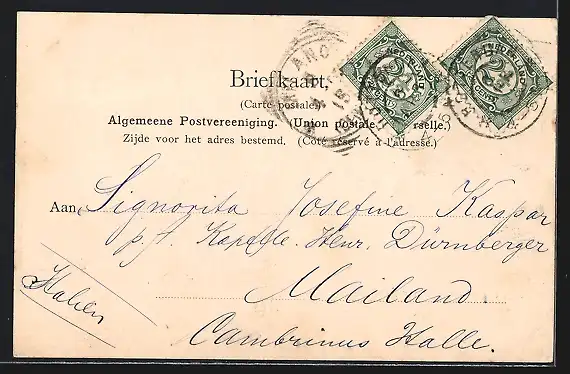 Briefkaart.
(Carte postale)
Algemeene Postvereeniging. (Union postale rselle.)
Zijde voor het adres bestemd. (Côté réservé à l'adresse.)
Aan Signorita Josefine Kaspar
p. f. Kapelle Henr. Dürnberger
Mailand.
Cambrinus Halle.
Italien
NEDERLAND
2½
CENT
NEDERLAND
2½
CENT